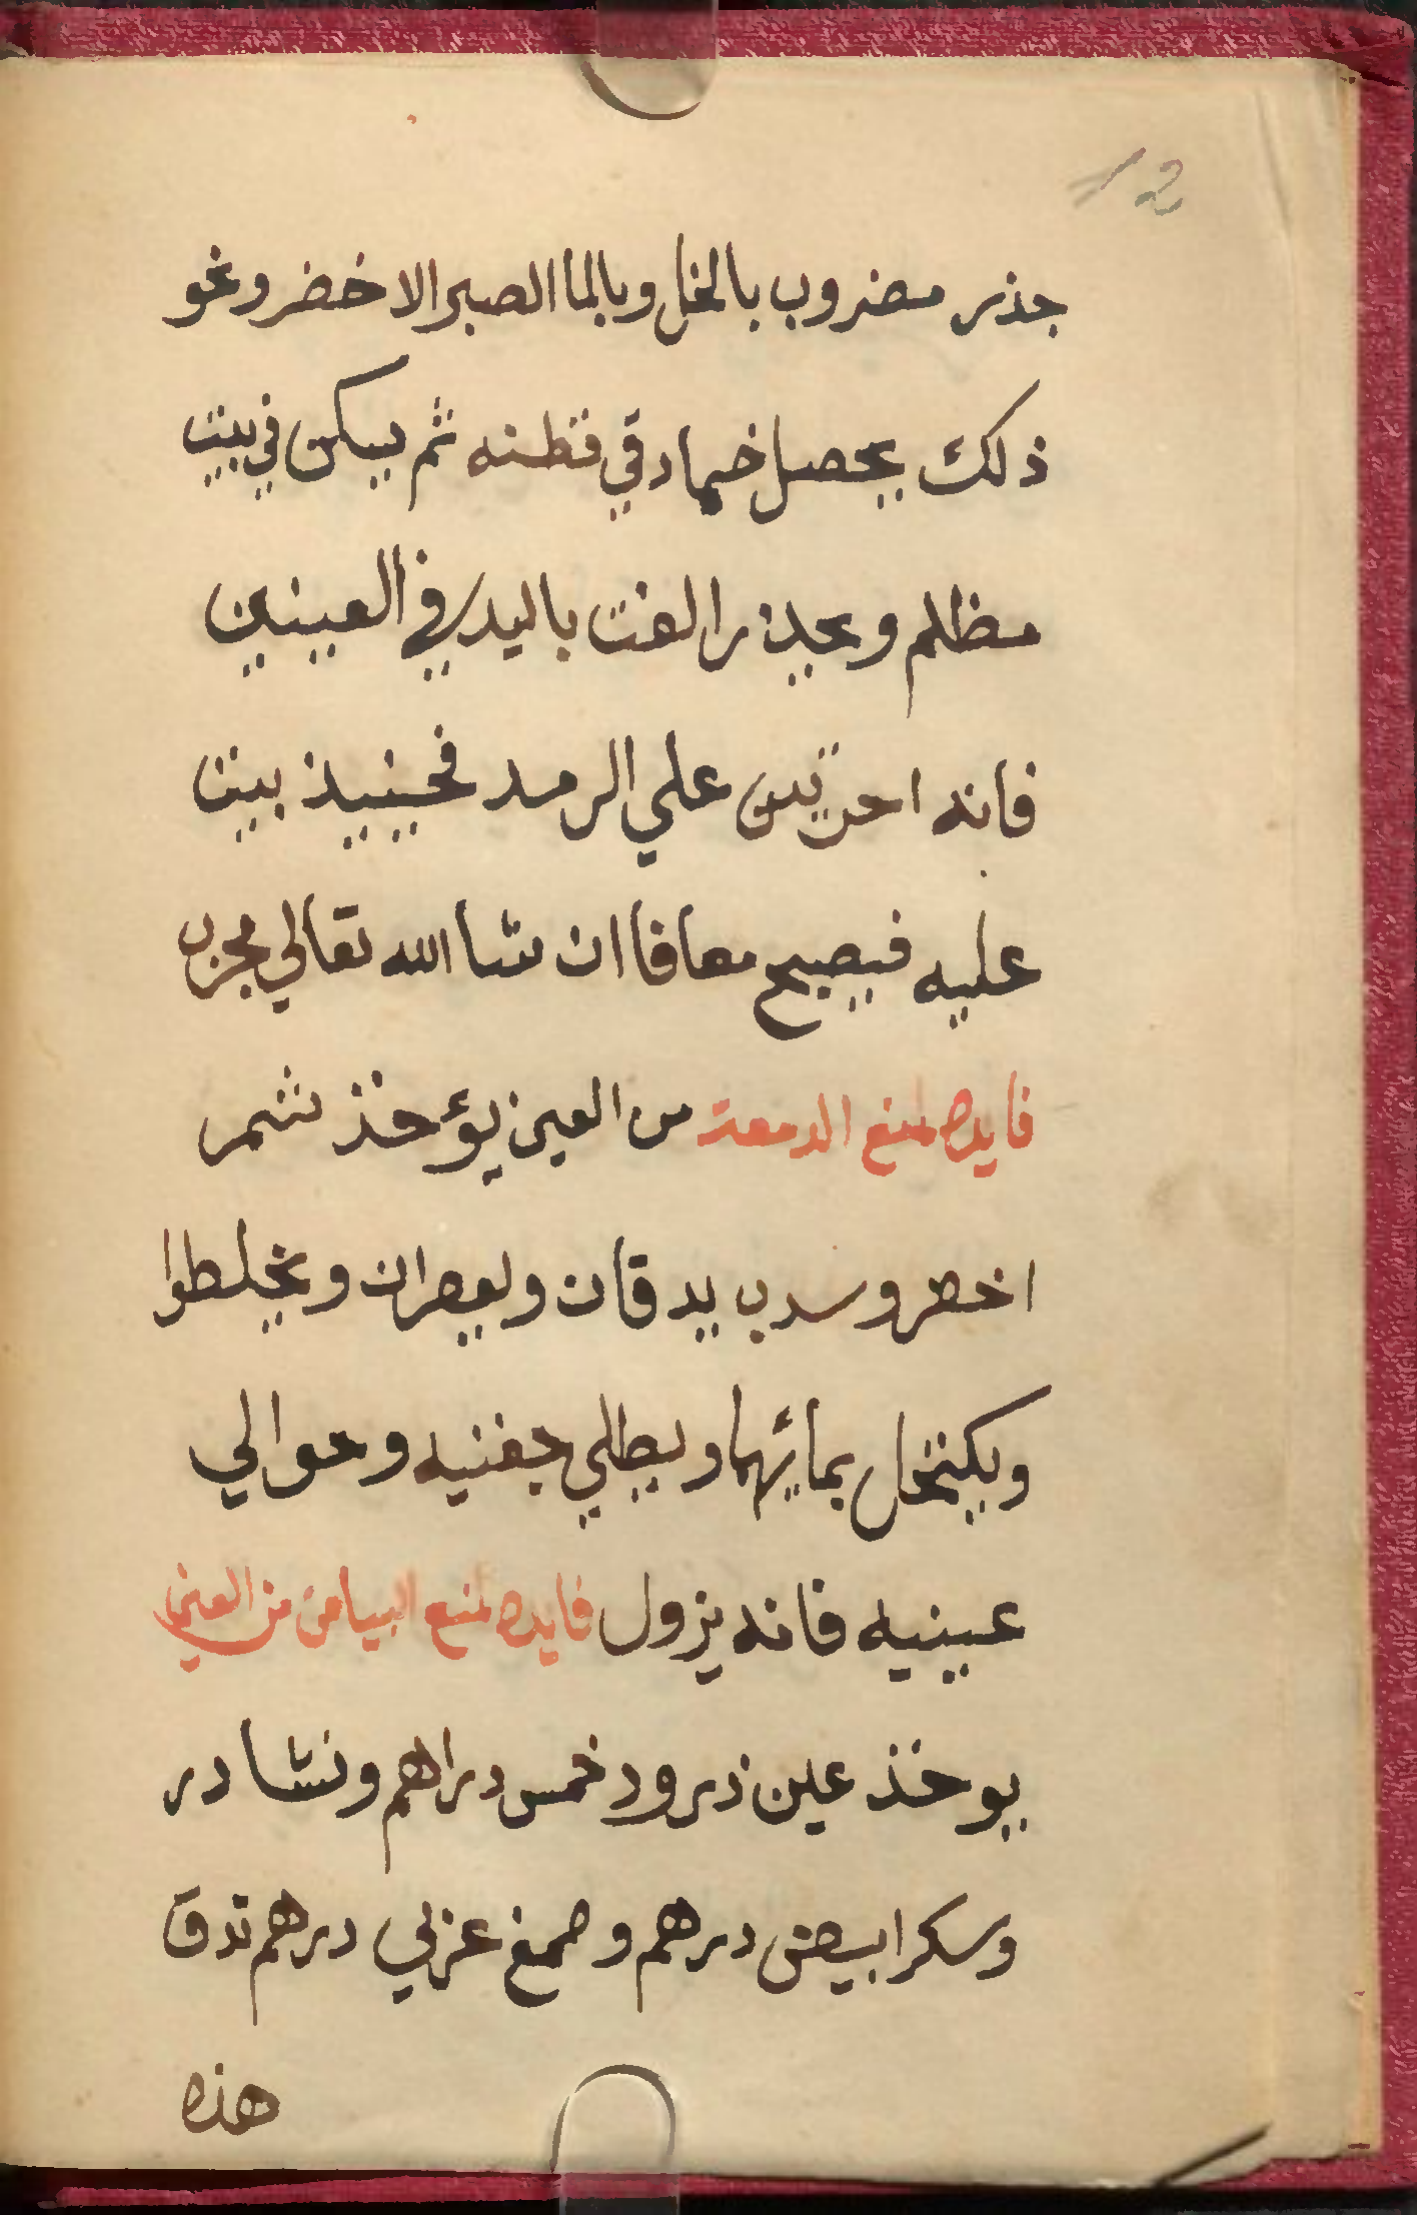 12
جذر مضروب بالخل وبالما الصبر الاخضر ونحو
ذلك يحصل ضماد في قطنه ثم يسكن في بيت
مظلم ويحذر الفت باليد في العينين
فانه علي الرمد فحينيذ يبيت
عليه فيصبح معافا ان شا الله تعالي مجرب
فايده لمنع الدمعة من العين يؤخذ شمر
اخضر وسدب يدقان ويعصران ويخلطوا
ويكتحل بمائهما ويطلي جفنيه وحوالي
عينيه فانه يزول فايده لمنع البياض من العين
يوخذ عين ذرود خمس دراهم ونشادر
وسكر ابيض درهم وصمغ عربي درهم تدق
هذه